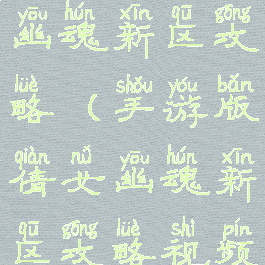 yōu hún xīn qū gōng
幽魂新区攻
lüè shǒu yóu bǎn
略(手游版
qiàn nǚ yōu hún xīn
倩女幽魂新
qū gōng lüè shì pín
区攻略视频